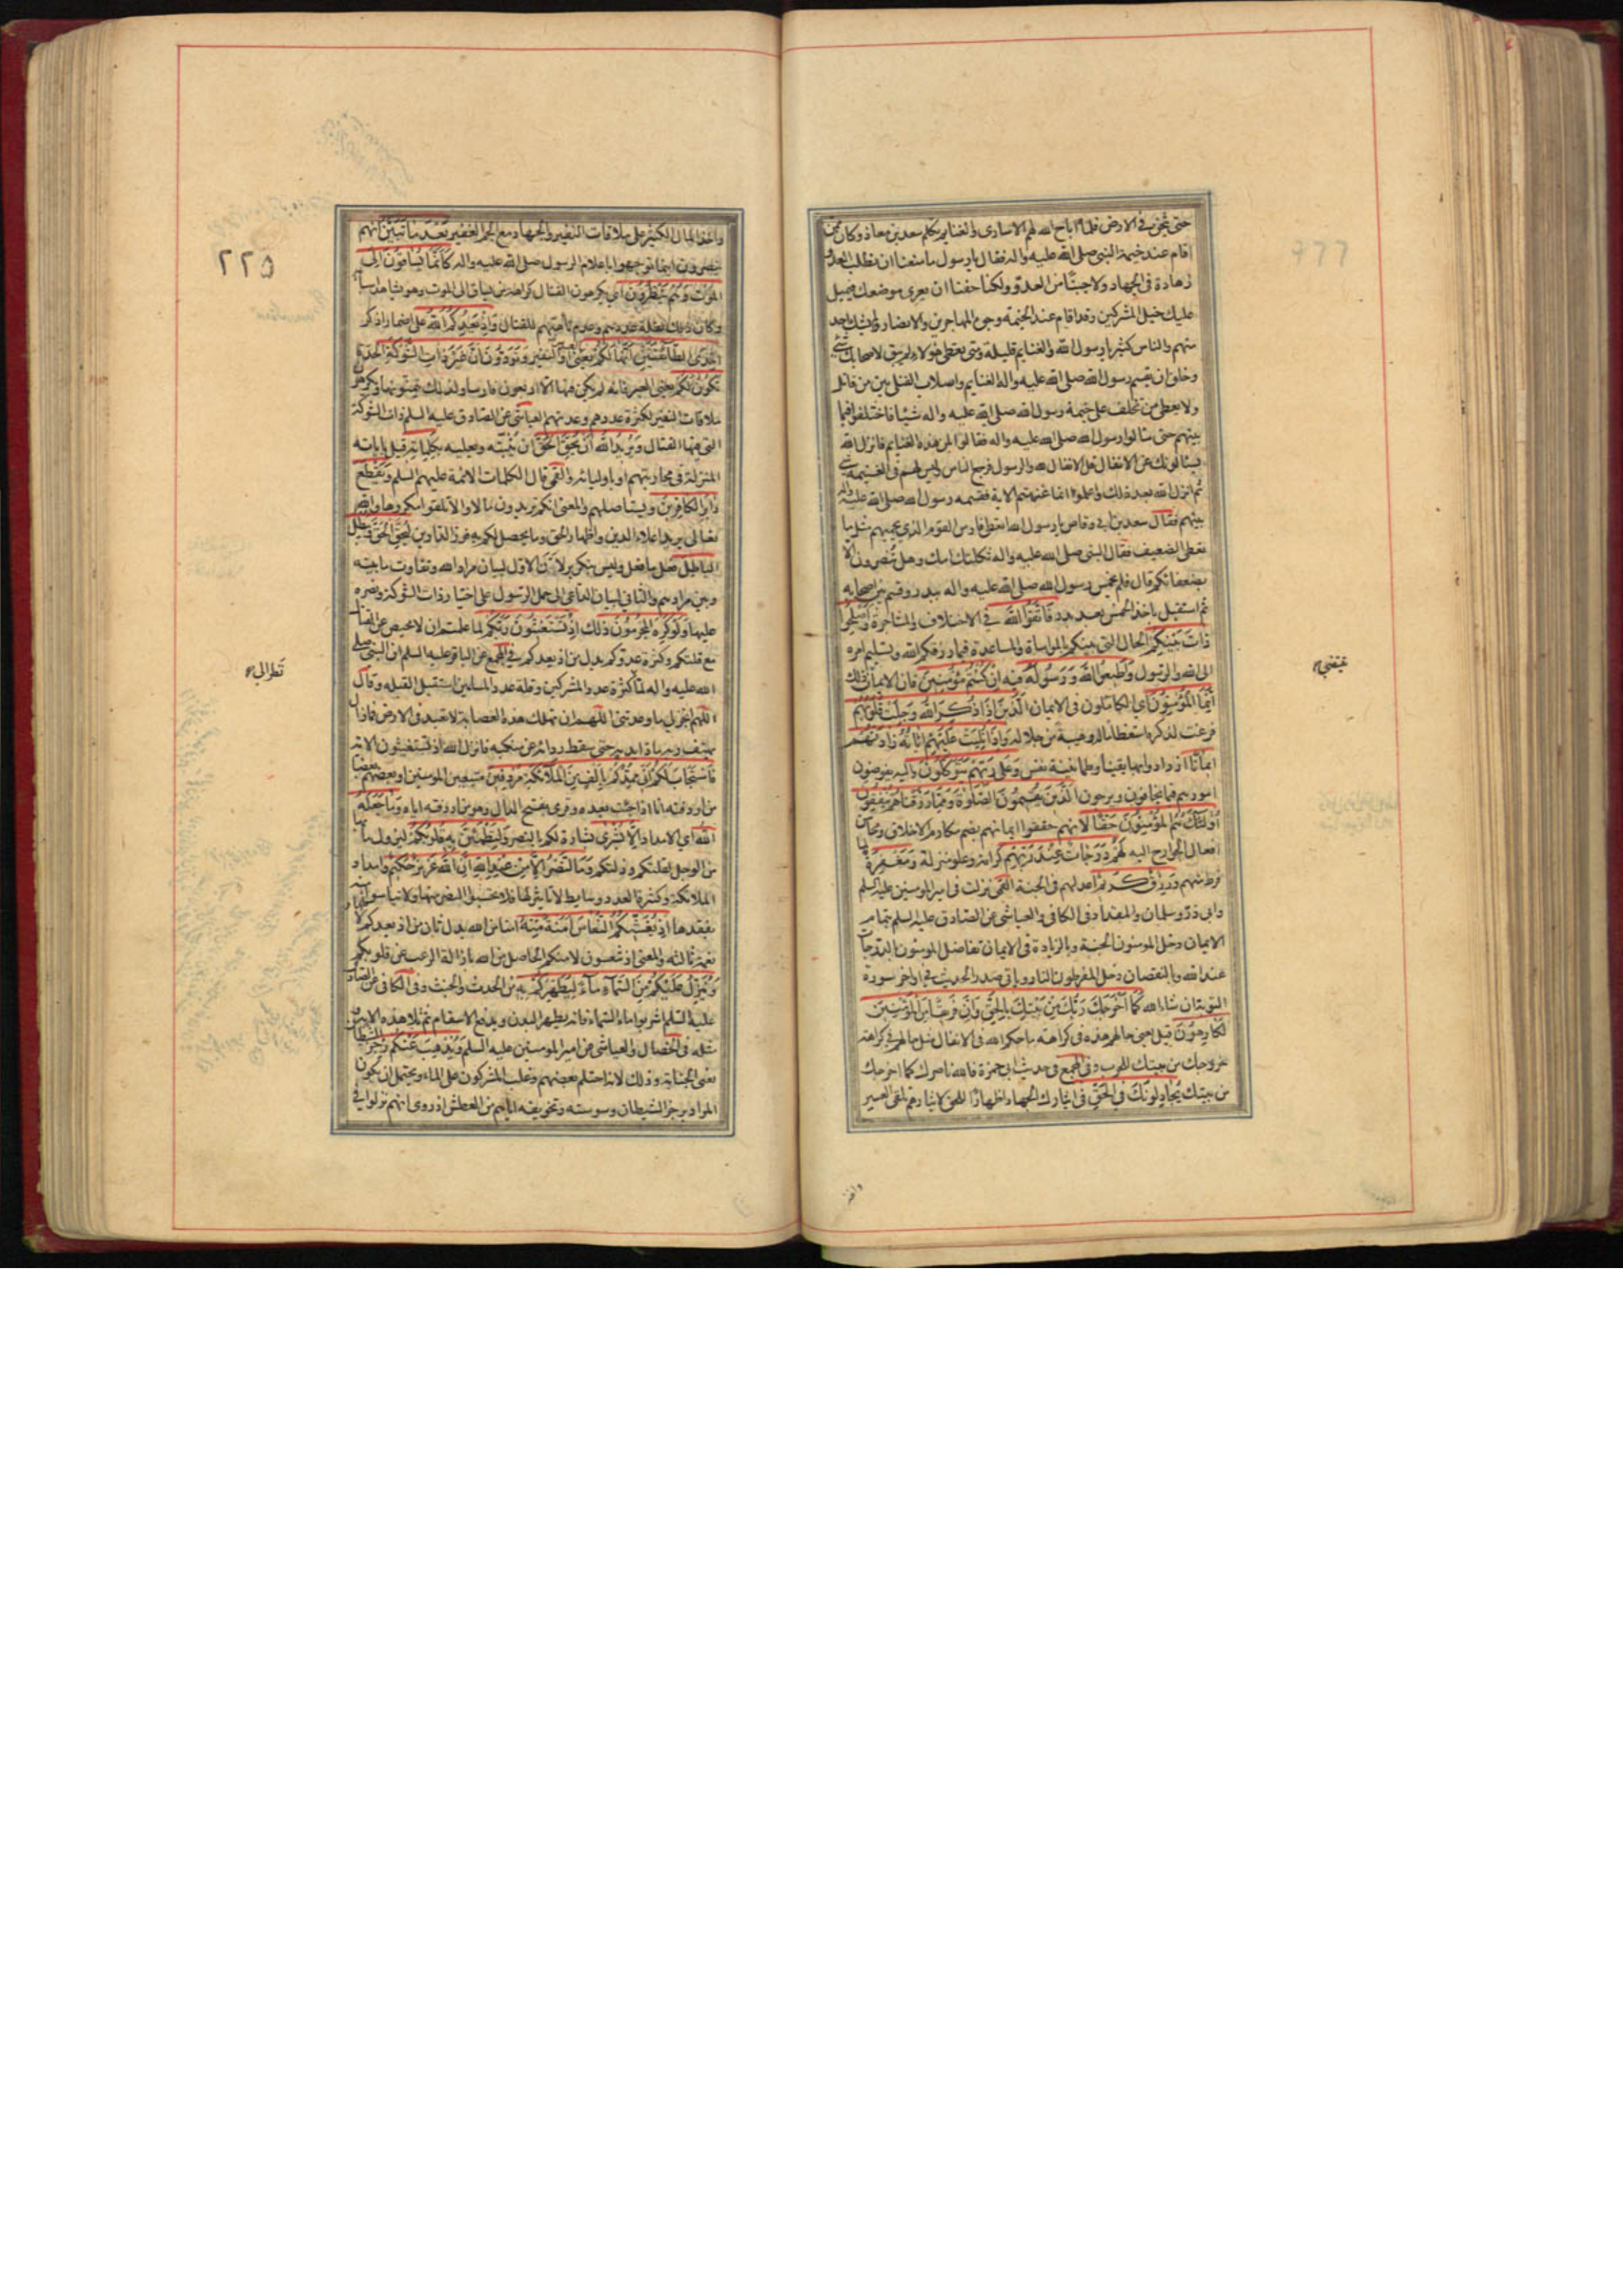 حتى يثخن في الارض فلما اباح الله لهم الاسارى والغنايم تكلم سعد بن معاذ وكان ممن
اقام عند خيمة النبي صلى الله عليه واله فقال يا رسول ما منعنا ان نطلب العدو
زهادة في الجهاد ولا جبنا من العدو ولكنا خفنا ان يعرى موضعك فيميل
عليك خيل المشركين وقد اقام عند الخيمة وجوه المهاجرين والانصار ولم يشك احد
منهم والناس كثير يا رسول الله والغنايم قليلة ومتى يعطى هؤلاء لم يبق لاصحابك شئ
وخاف ان يقسم رسول الله صلى الله عليه واله الغنايم واسلاب القتلى بين من قاتل
ولا يعطى من تخلف على خيمة رسول الله صلى الله عليه واله شيئا فاختلفوا فيما
بينهم حتى سألوا رسول الله صلى الله عليه واله فقالوا لمن هذه الغنايم فانزل الله
يسئلونك عن الانفال قل الانفال لله والرسول فرجع الناس وليس لهم في الغنيمة شئ
ثم انزل الله بعد ذلك واعلموا انما غنمتم الاية فقسمه رسول الله صلى الله عليه واله
بينهم فقال سعد بن ابي وقاص يا رسول الله اتعطى فارس القوم الذي يحميهم مثل ما
تعطى الضعيف فقال النبي صلى الله عليه واله ثكلتك امك وهل تنصرون الا
بضعفائكم قال فلم يخمس رسول الله صلى الله عليه واله ببدر وقسم بين اصحابه
ثم استقبل ياخذ الخمس بعد بدر فَاتَّقُوا اللَّهَ في الاختلاف والمشاجرة وَأَصْلِحُوا
ذَاتَ بَيْنِكُمْ الحال التي بينكم بالمواساة والمساعدة فيما رزقكم الله وتسليم امره
الى الله والرسول وَأَطِيعُوا اللَّهَ وَرَسُولَهُ فيه إِنْ كُنْتُمْ مُؤْمِنِينَ فان الايمان ذلك
إِنَّمَا الْمُؤْمِنُونَ اي الكاملون في الايمان الَّذِينَ إِذَا ذُكِرَ اللَّهُ وَجِلَتْ قُلُوبُهُمْ
فزعت لذكره استعظاما له وهيبة من جلاله وَإِذَا تُلِيَتْ عَلَيْهِمْ آيَاتُهُ زَادَتْهُمْ
إِيمَانًا ازدادوا بها يقينا وطمانينة نفس وَعَلَى رَبِّهِمْ يَتَوَكَّلُونَ واليه يفوضون
امورهم فيما يخافون ويرجون الَّذِينَ يُقِيمُونَ الصَّلَوٰةَ وَمِمَّا رَزَقْنَاهُمْ يُنْفِقُونَ
أُولَئِكَ هُمُ الْمُؤْمِنُونَ حَقًّا لانهم حققوا ايمانهم بضم مكارم الاخلاق ومحاسن
افعال الجوارح اليه لَهُمْ دَرَجَاتٌ عِنْدَ رَبِّهِمْ كرامة وعلو منزلة وَمَغْفِرَةٌ لما
فرط منهم وَرِزْقٌ كَرِيمٌ اعد لهم في الجنة القمي نزلت في امير المؤمنين عليه السلم
وابي ذر وسلمان والمقداد في الكافي والعياشي عن الصادق عليه السلم بتمام
الايمان دخل المؤمنون الجنة وبالزيادة في الايمان تفاضل المؤمنون بالدرجات
عند الله وبالنقصان دخل المفرطون النار وياتي صدر الحديث في اواخر سورة
التوبة ان شاء الله كَمَا أَخْرَجَكَ رَبُّكَ مِنْ بَيْتِكَ بِالْحَقِّ وَإِنَّ فَرِيقًا مِنَ الْمُؤْمِنِينَ
لَكَارِهُونَ قيل يعني حالهم هذه في كراهة ما حكم الله في الانفال مثل حالهم في كراهة
خروجك من بيتك للحرب وفي المجمع في حديث ابي حمزة فالله ناصرك كما اخرجك
من بيتك يُجَادِلُونَكَ فِي الْحَقِّ في ايثارك الجهاد اظهارا للحق لايثارهم تلقى العير
واخذ
يقتضي
٢٢٥
واخذ المال الكثير على ملاقات النفير والجهاد مع الجم الغفير بَعْدَ مَا تَبَيَّنَ انهم
ينصرون اينما توجهوا باعلام الرسول صلى الله عليه واله كَأَنَّمَا يُسَاقُونَ إِلَى
الْمَوْتِ وَهُمْ يَنْظُرُونَ اي يكرهون القتال كراهة من يساق الى الموت وهو يشاهد اسبابه
وكان ذلك لقلة عددهم وعدم تأهبهم للقتال وَإِذْ يَعِدُكُمُ اللَّهُ على اضمار اذكر
إِحْدَى الطَّائِفَتَيْنِ أَنَّهَا لَكُمْ يعني العير او النفير وَتَوَدُّونَ أَنَّ غَيْرَ ذَاتِ الشَّوْكَةِ الحدة
تَكُونُ لَكُمْ يعني العير فانه لم يكن فيها الا اربعون فارسا ولذلك يتمنونها ويكرهون
ملاقات النفير لكثرة عددهم وعدتهم العياشي عن الصادق عليه السلم ذات الشوكة
التي فيها القتال وَيُرِيدُ اللَّهُ أَنْ يُحِقَّ الْحَقَّ ان يثبته ويعليه بِكَلِمَاتِهِ قيل باياته
المنزلة في محاربتهم او باوليائه والقمي قال الكلمات الائمة عليهم السلم وَيَقْطَعَ
دَابِرَ الْكَافِرِينَ ويستاصلهم والمعنى انكم تريدون مالا والا تلقوا مكروها والله
تعالى يريد اعلاء الدين واظهار الحق وما يحصل لكم به فوز الدارين لِيُحِقَّ الْحَقَّ وَيُبْطِلَ
الْبَاطِلَ فعل ما فعل وليس بتكرير لان الاول لبيان مراد الله وتفاوت ما بينه
وبين مرادهم والثاني لبيان الداعي الى حمل الرسول على اختيار ذات الشوكة ونصره
عليها وَلَوْ كَرِهَ الْمُجْرِمُونَ ذلك إِذْ تَسْتَغِيثُونَ رَبَّكُمْ لما علمتم ان لا محيص عن القتال
مع قلتكم وكثرة عدوكم بدل من اذ يعدكم في المجمع عن الباقر عليه السلم ان النبي صلى
الله عليه واله لما كثرة عدد المشركين وقلة عدد المسلمين استقبل القبلة وقال
اللهم انجز لي ما وعدتني اللهم ان تهلك هذه العصابة لا تعبد في الارض فما زال
يهتف ربه مادا يديه حتى سقط رداؤه عن منكبه فانزل الله اذ تستغيثون الاية
فَاسْتَجَابَ لَكُمْ أَنِّي مُمِدُّكُمْ بِأَلْفٍ مِنَ الْمَلَائِكَةِ مُرْدِفِينَ متبعين المؤمنين او بعضهم بعضا
من اردفته انا اذا جئت بعده وقرئ بفتح الدال وهو من اردفته اياه وَمَا جَعَلَهُ
اللَّهُ اي الامداد إِلَّا بُشْرَى بشارة لكم بالنصر وَلِتَطْمَئِنَّ بِهِ قُلُوبُكُمْ ليزول ما بها
من الوجل لقلتكم وذلتكم وَمَا النَّصْرُ إِلَّا مِنْ عِنْدِ اللَّهِ إِنَّ اللَّهَ عَزِيزٌ حَكِيمٌ وامداد
الملائكة وكثرة العدد وسايط لا تاثير لها فلا تحسبوا النصر منها ولا تيأسوا منه
بفقدها إِذْ يُغَشِّيكُمُ النُّعَاسَ أَمَنَةً مِنْهُ امنا من الله بدل ثان من اذ يعدكم لاظهار
نعمة ثالثة والمعنى اذ تنعسون لامنكم الحاصل من الله بازالة الرعب عن قلوبكم
وَيُنَزِّلُ عَلَيْكُمْ مِنَ السَّمَاءِ مَاءً لِيُطَهِّرَكُمْ بِهِ من الحدث والخبث وفي الكافي عن الصادق
عليه السلم اشربوا ماء السماء فانه يطهر البدن ويدفع الاسقام ثم تلا هذه الاية ومثله
في الخصال والعياشي عن امير المؤمنين عليه السلم وَيُذْهِبَ عَنْكُمْ رِجْزَ الشَّيْطَانِ
يعني الجنابة وذلك لانه احتلم بعضهم وغلب المشركون على الماء ويحتمل ان يكون
المراد برجز الشيطان وسوسته وتخويفه اياهم من العطش اذ روى انهم نزلوا في
نظر الى